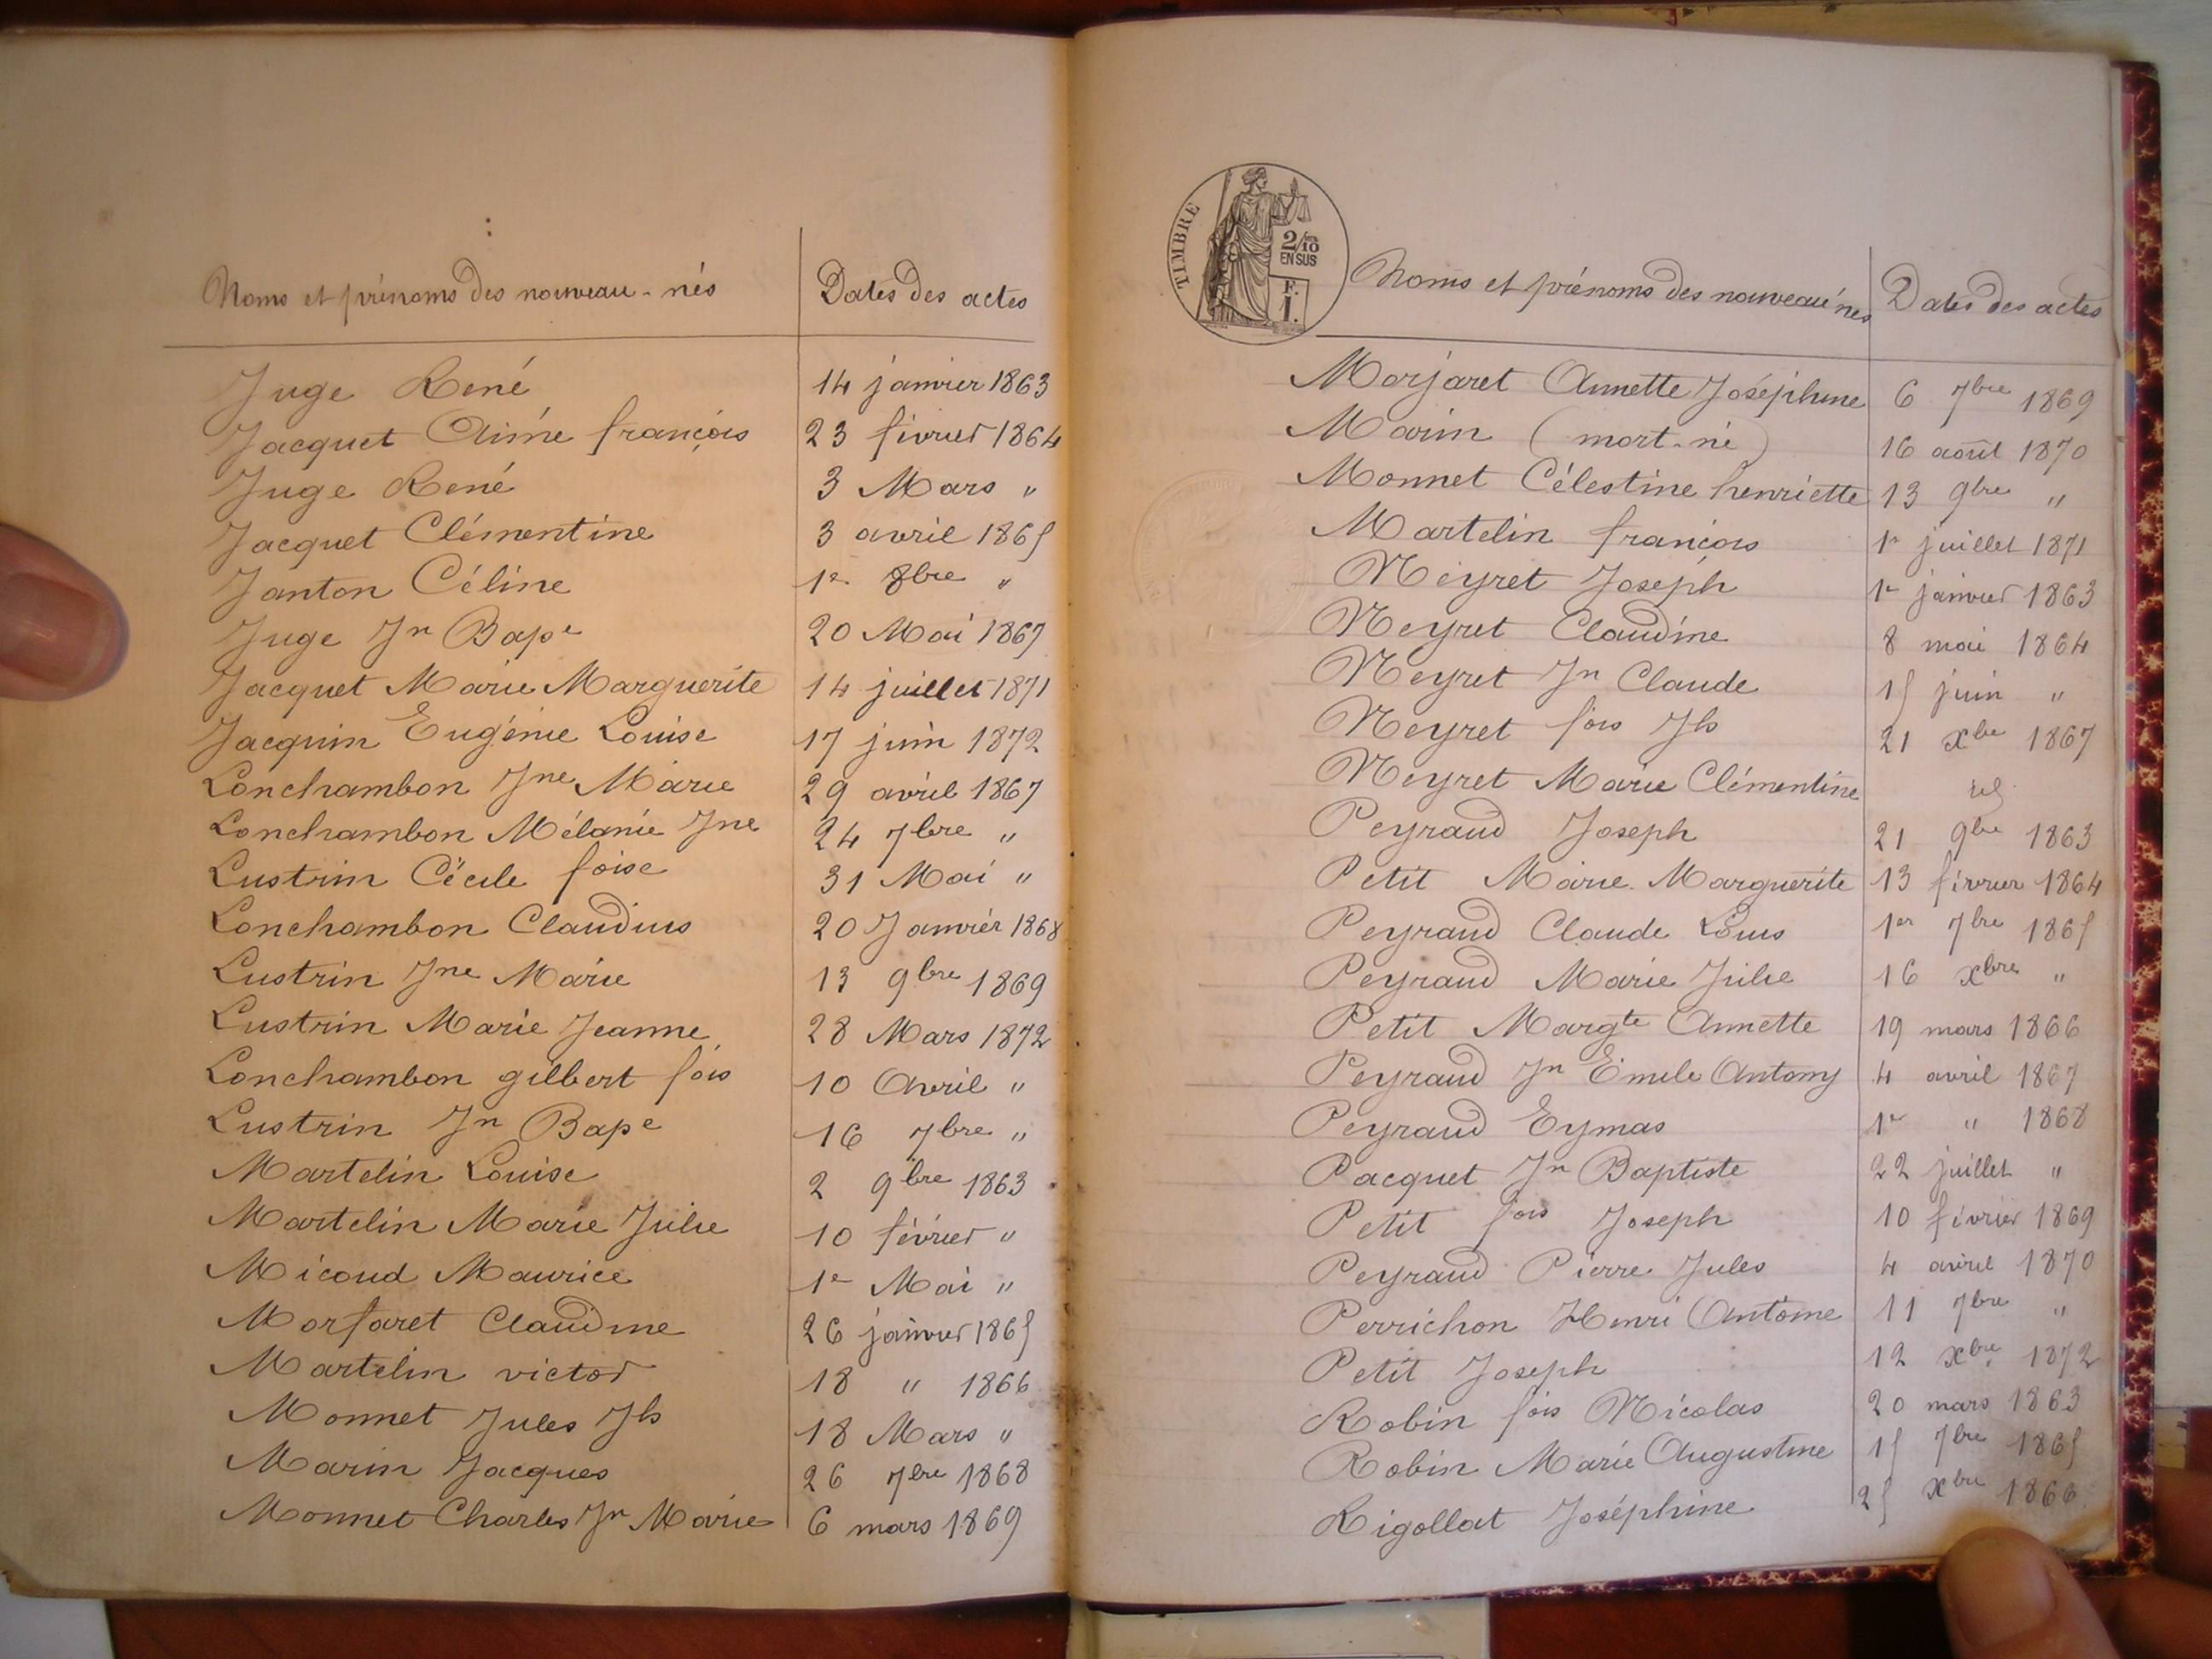 Noms et prénoms des nouveau-nés Dates des actes
Juge René 14 janvier 1863
Jacquet Aimé françois 23 février 1864
Juge René 3 Mars "
Jacquet Clémentine 3 avril 1865
Janton Céline 1er 8bre "
Juge Jn Bape 20 Mai 1867
Jacquet Marie Marguerite 14 juillet 1871
Jacquin Eugénie Louise 17 juin 1872
Lonchambon Jne Marie 29 avril 1867
Lonchambon Mélanie Jne 24 7bre "
Lustrin Cécile foise 31 Mai "
Lonchambon Claudius 20 Janvier 1868
Lustrin Jne Marie 13 9bre 1869
Lustrin Marie Jeanne 28 Mars 1872
Lonchambon gilbert fois 10 Avril "
Lustrin Jn Bape 16 7bre "
Martelin Louise 2 9bre 1863
Martelin Marie Julie 10 février "
Micoud Maurice 1er Mai "
Morjaret Claudine 26 janvier 1865
Martelin victor 18 " 1866
Monnet Jules Jh 18 Mars "
Marin Jacques 26 7bre 1868
Monnet Charles Jn Marie 6 mars 1869
TIMBRE
2/10
EN SUS
F.
1.
Noms et prénoms des nouveau nés Dates des actes
Morjaret Annette Joséphine 6 7bre 1869
Marin (mort-né) 16 août 1870
Monnet Célestine henriette 13 9bre "
Martelin françois 1er juillet 1871
Neyret Joseph 1er janvier 1863
Neyret Claudine 8 mai 1864
Neyret Jn Claude 15 juin "
Neyret fois Jh 21 xbre 1867
Neyret Marie Clémentine
Peyraud Joseph 21 9bre 1863
Petit Marie Marguerite 13 février 1864
Peyraud Claude Louis 1er 7bre 1865
Peyraud Marie Julie 16 xbre "
Petit Margte Annette 19 mars 1866
Peyraud Jn Emile Antony 4 avril 1867
Peyraud Eymas 1er " 1868
Pacquet Jn Baptiste 22 juillet "
Petit fois Joseph 10 février 1869
Peyraud Pierre Jules 4 avril 1870
Perrichon Henri Antoine 11 7bre "
Petit Joseph 12 xbre 1872
Robin fois Nicolas 20 mars 1863
Robin Marie Augustine 15 7bre 1865
Rigollat Joséphine 25 xbre 1866